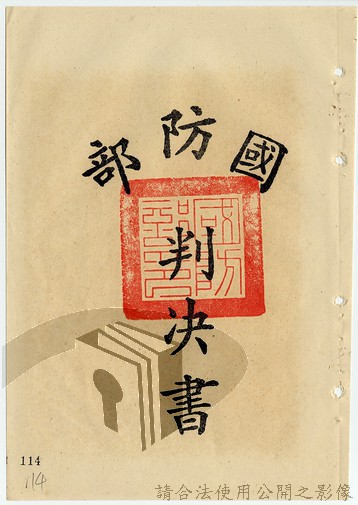 國防部
判決書
114
114
請合法使用公開之影像